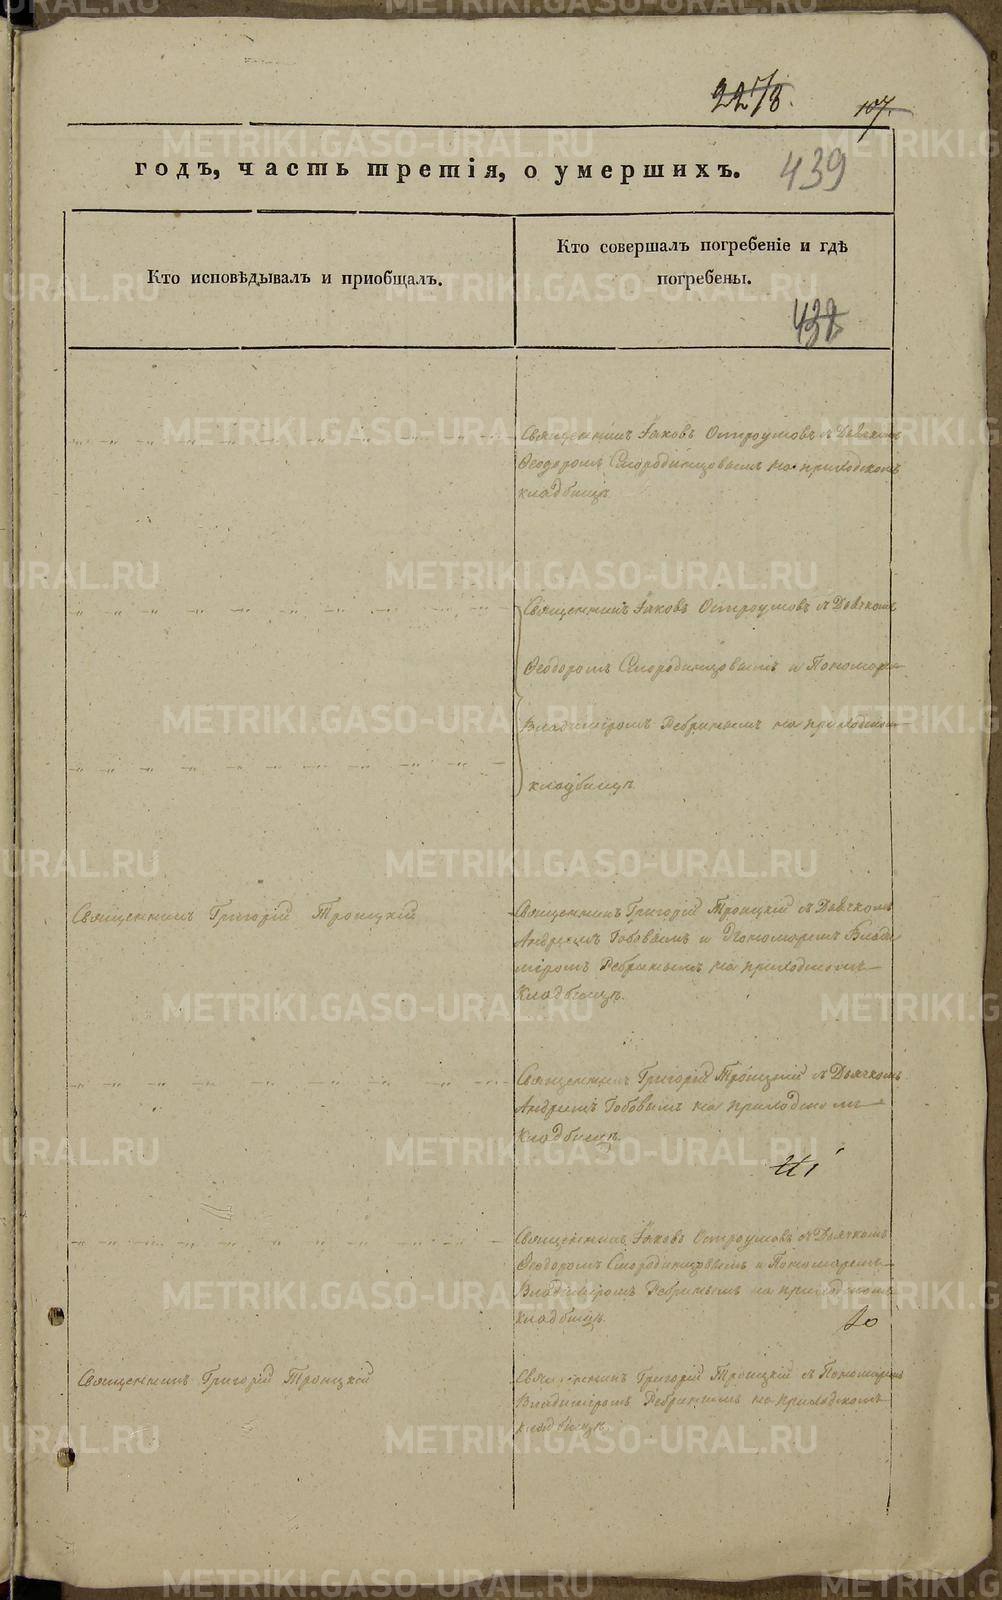 22 1/8.
107.
годъ, часть третія, о умершихъ.
439
Кто исповѣдывалъ и пріобщалъ.
Кто совершалъ погребеніе и гдѣ
погребены.
437
Священникъ Іаковъ Остроумовъ съ Дьячкомъ
Ѳеодоромъ Смородинцовымъ на приходскомъ
кладбищѣ.
Священникъ Іаковъ Остроумовъ съ Дьячкомъ
Ѳеодоромъ Смородинцовымъ и Пономаремъ
Владиміромъ Ребринымъ на приходскомъ
кладбищѣ
Священникъ Григорій Троицкій
Священникъ Григорій Троицкій съ Дьячкомъ
Андреемъ Бобовымъ и Пономаремъ Влади
міромъ Ребринымъ на приходскомъ
кладбищѣ.
Священникъ Григорій Троицкій съ Дьячкомъ
Андреемъ Бобовымъ на приходскомъ
кладбищѣ.
Священникъ Іаковъ Остроумовъ съ Дьячкомъ
Ѳеодоромъ Смородинцовымъ и Пономаремъ
Владиміромъ Ребринымъ на приходскомъ
кладбищѣ.
Священникъ Григорій Троицкій
Священникъ Григорій Троицкій съ Пономаремъ
Владиміромъ Ребринымъ на приходскомъ
кладбищѣ.
METRIKI.GASO-URAL.RU